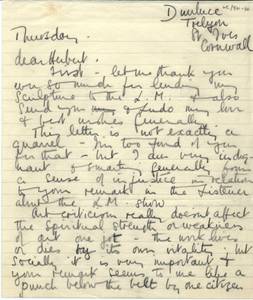 Dunluce
Trelyon
St Ives
Cornwall
Thursday
dear Herbert.
First – let me thank you
very so much for lending my
sculpture to the L.M. – also
send you & Ludo my love
& best wishes generally
This letter is not exactly a
quarrel – I'm too fond of you
for that – but I am very indig-
nant & smart generally from
a sense of injustice in relation
to your remark in the Listener
about the L.M. show
Art criticism really doesnt affect
the spiritual strength or weakness
of art one jot – the work lives
or dies by its own vitality – but
socially it is very important &
your remark seems to me like a
punch below the belt by one citizen